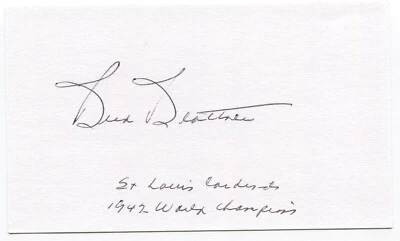 Bud Blattner
St Louis Cardinals
1942 World Champions